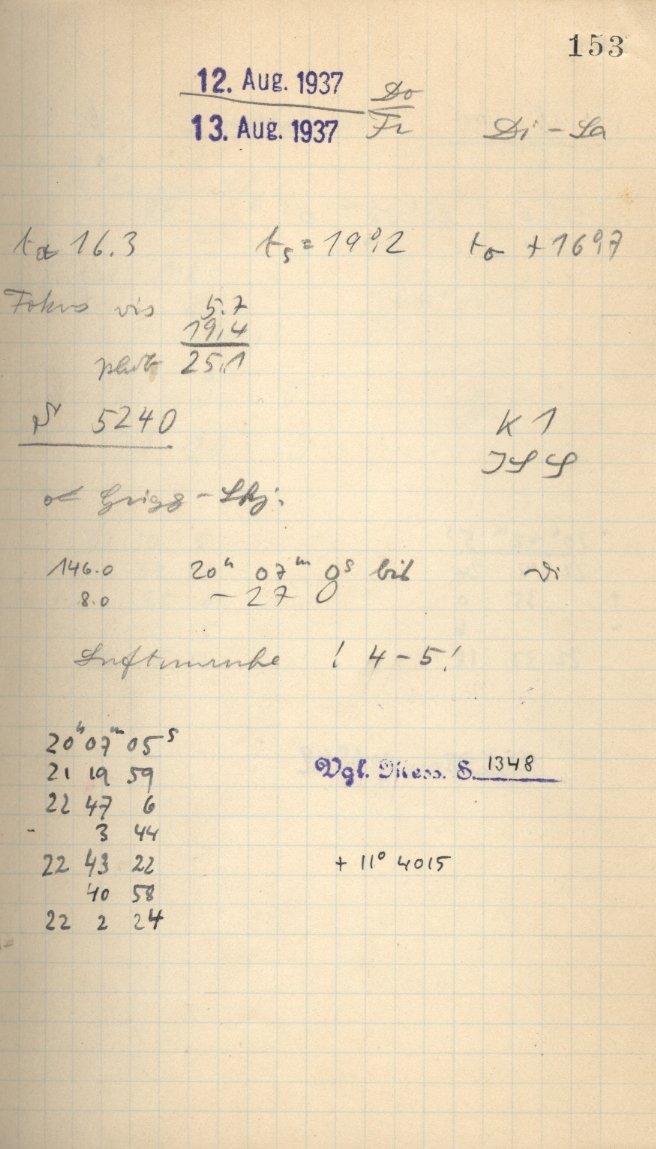 153
12. Aug. 1937 Do
13. Aug. 1937 Fr Di - La
16.3 ts = 19°,2 +16°,7
Fokus vis 5.7
19,4
phot 25,1
N 5240 K 1
Grigg - Skj.
146.0 20h 07m 0s bis
8.0 - 27 0
Luftunruhe ! 4 - 5!
20h 07m 05s
21 19 59
Vgl. Mess. S. 1348
22 47 6
- 3 44
22 43 22 + 11° 4015
40 58
22 2 24